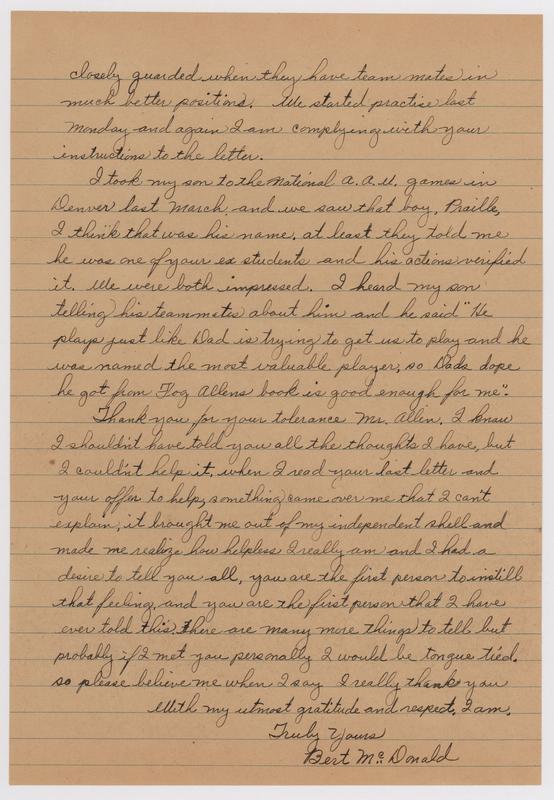 closely guarded when they have team mates in
much better positions. We started practise last
Monday and again I am complying with your
instructions to the letter.
I took my son to the National A.A.U. games in
Denver last March, and we saw that boy, Praille,
I think that was his name, at least they told me
he was one of your ex students and his actions verified
it. We were both impressed. I heard my son
telling his teammates about him and he said "He
plays just like Dad is trying to get us to play and he
was named the most valuable player, so Dads dope
he got from Fog Allens book is good enough for me".
Thank you for your tolerance Mr. Allen. I know
I shouldn't have told you all the thoughts I have, but
I couldn't help it, when I read your last letter and
your offer to help, something came over me that I can't
explain, it brought me out of my independent shell and
made me realize how helpless I really am and I had a
desire to tell you all, you are the first person to instill
that feeling and you are the first person that I have
ever told this, there are many more things to tell but
probably if I met you personally I would be tongue tied.
so please believe me when I say I really thank you
With my utmost gratitude and respect, I am.
Truly Yours
Bert McDonald